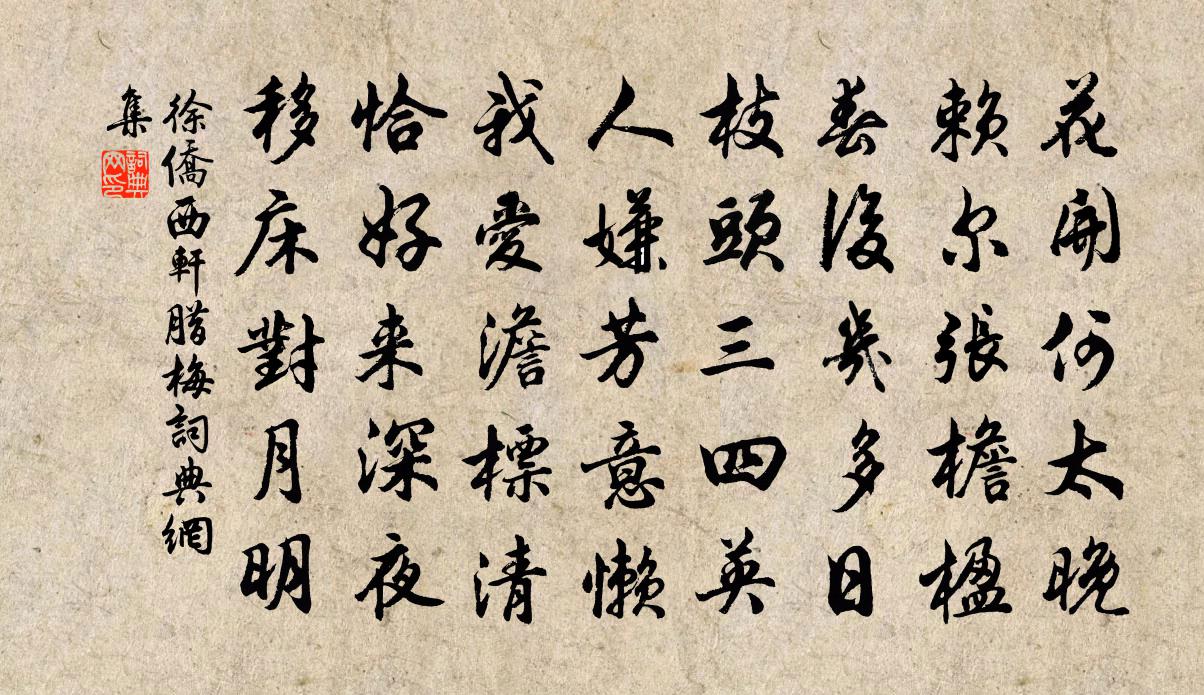 花開何太晚
赖尔張檐楹
春後幾多日
枝頭三四英
人嫌芳意懒
我愛澹標清
恰好来深夜
移床對月明
徐僑西軒腊梅詞典網
集
詞典
网印